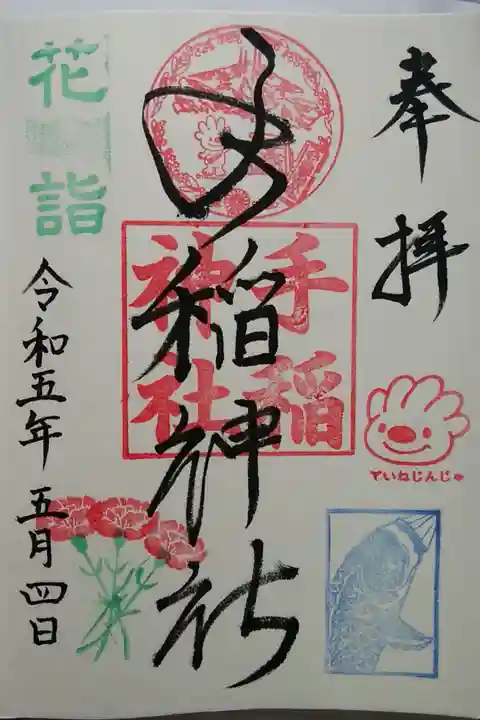 奉拝
手稲神社
手稲
神社
ていねじんじゃ
花
詣
令和五年 五月四日